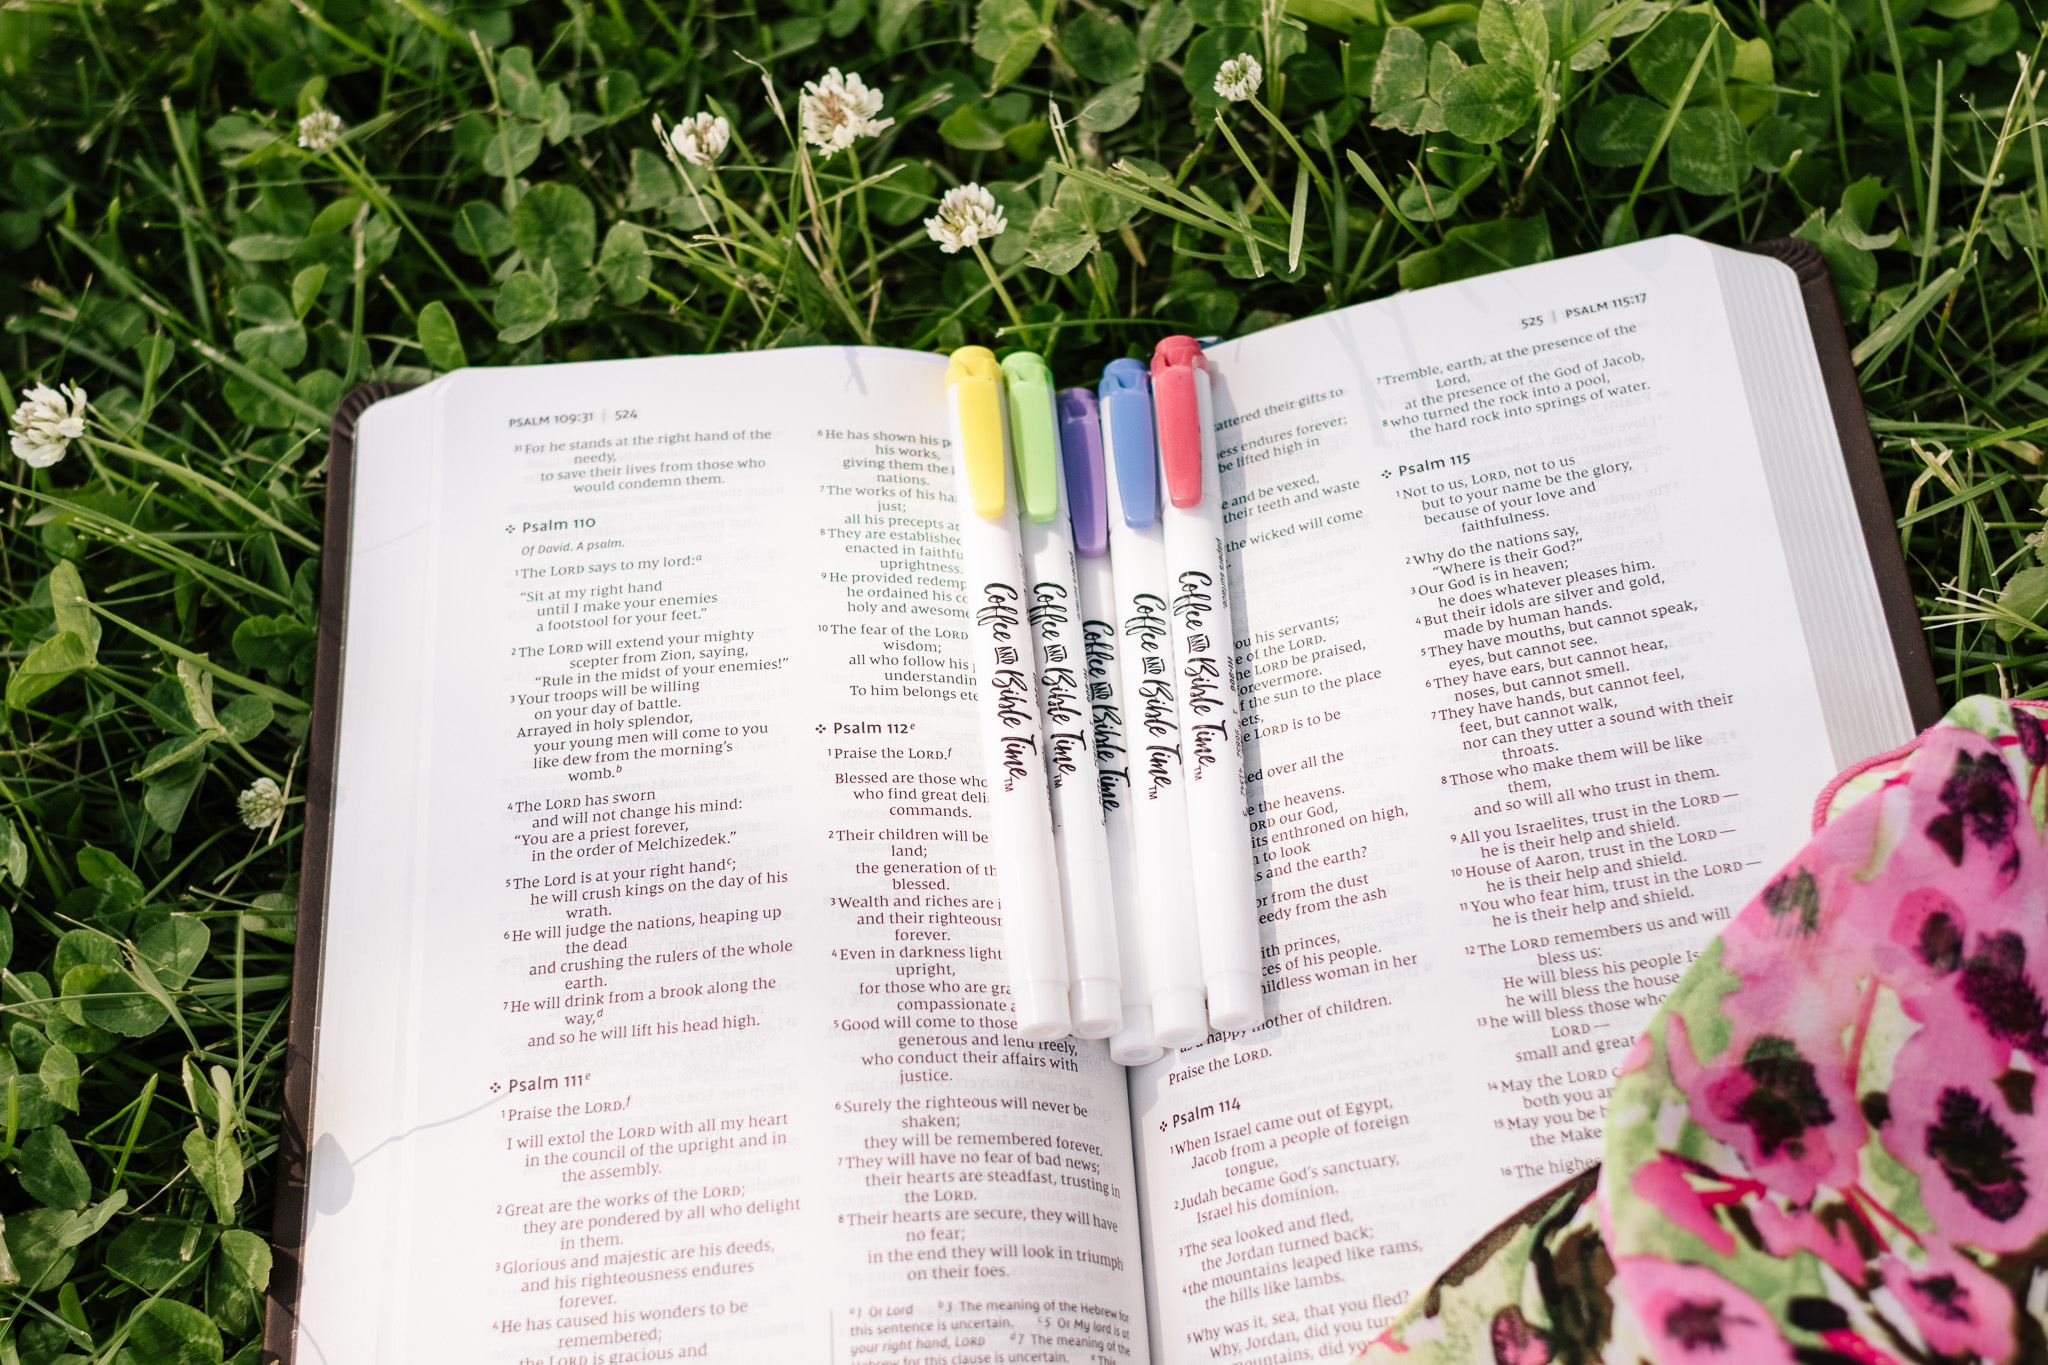 PSALM 109:31 | 524
31 For he stands at the right hand of the
needy,
to save their lives from those who
would condemn them.
Psalm 110
Of David. A psalm.
1 The LORD says to my lord:a
“Sit at my right hand
until I make your enemies
a footstool for your feet.”
2 The LORD will extend your mighty
scepter from Zion, saying,
“Rule in the midst of your enemies!”
3 Your troops will be willing
on your day of battle.
Arrayed in holy splendor,
your young men will come to you
like dew from the morning’s
womb.b
4 The LORD has sworn
and will not change his mind:
“You are a priest forever,
in the order of Melchizedek.”
5 The Lord is at your right handc;
he will crush kings on the day of his
wrath.
6 He will judge the nations, heaping up
the dead
and crushing the rulers of the whole
earth.
7 He will drink from a brook along the
way,d
and so he will lift his head high.
Psalm 111e
1 Praise the LORD.f
I will extol the LORD with all my heart
in the council of the upright and in
the assembly.
2 Great are the works of the LORD;
they are pondered by all who delight
in them.
3 Glorious and majestic are his deeds,
and his righteousness endures
forever.
4 He has caused his wonders to be
remembered;
the LORD is gracious and
6 He has shown his
his works,
giving them the
nations.
7 The works of his
just;
all his precepts
8 They are established
enacted in
uprightness.
9 He provided
he ordained his
holy and awesome
10 The fear of the LORD
wisdom;
all who follow his
To him belongs
Psalm 112e
1 Praise the LORD.f
Blessed are those who
who find great
commands.
2 Their children will be
land;
the generation of
blessed.
3 Wealth and riches are
and their
forever.
4 Even in darkness light
upright,
for those who are
compassionate
5 Good will come to those
generous and lend freely,
who conduct their affairs with
justice.
6 Surely the righteous will never be
shaken;
they will be remembered forever.
7 They will have no fear of bad news;
their hearts are steadfast, trusting in
the LORD.
8 Their hearts are secure, they will have
no fear;
in the end they will look in triumph
on their foes.
a 1 Or Lord b 3 The meaning of the Hebrew for
this sentence is uncertain. c 5 Or My lord is at
your right hand, LORD d 7 The meaning of the
Hebrew for this clause is uncertain. e This
Coffee AND Bible Time TM
Coffee AND Bible Time TM
Coffee AND Bible Time
Coffee AND Bible Time TM
Coffee AND Bible Time TM
their gifts to
endures forever;
be lifted high in
and be vexed,
their teeth and waste
the wicked will come
his servants;
of the LORD.
LORD be praised,
the sun to the place
LORD is to be
over all the
the heavens.
our God,
enthroned on high,
to look
and the earth?
from the dust
from the ash
princes,
of his people.
woman in her
happy mother of children.
Praise the LORD.
Psalm 114
1 When Israel came out of Egypt,
Jacob from a people of foreign
tongue,
2 Judah became God’s sanctuary,
Israel his dominion.
3 The sea looked and fled,
the Jordan turned back;
4 the mountains leaped like rams,
the hills like lambs.
5 Why was it, sea, that you fled?
Why, Jordan, did you
mountains, did
525 | PSALM 115:17
7 Tremble, earth, at the presence of the
Lord,
at the presence of the God of Jacob,
8 who turned the rock into a pool,
the hard rock into springs of water.
Psalm 115
1 Not to us, LORD, not to us
but to your name be the glory,
because of your love and
faithfulness.
2 Why do the nations say,
“Where is their God?”
3 Our God is in heaven;
he does whatever pleases him.
4 But their idols are silver and gold,
made by human hands.
5 They have mouths, but cannot speak,
eyes, but cannot see.
6 They have ears, but cannot hear,
noses, but cannot smell.
7 They have hands, but cannot feel,
feet, but cannot walk,
nor can they utter a sound with their
throats.
8 Those who make them will be like
them,
and so will all who trust in them.
9 All you Israelites, trust in the LORD —
he is their help and shield.
10 House of Aaron, trust in the LORD —
he is their help and shield.
11 You who fear him, trust in the LORD —
he is their help and shield.
12 The LORD remembers us and will
bless us:
He will bless his people
he will bless the house
13 he will bless those who
LORD —
small and great
14 May the LORD
both you
15 May you be
the
16 The